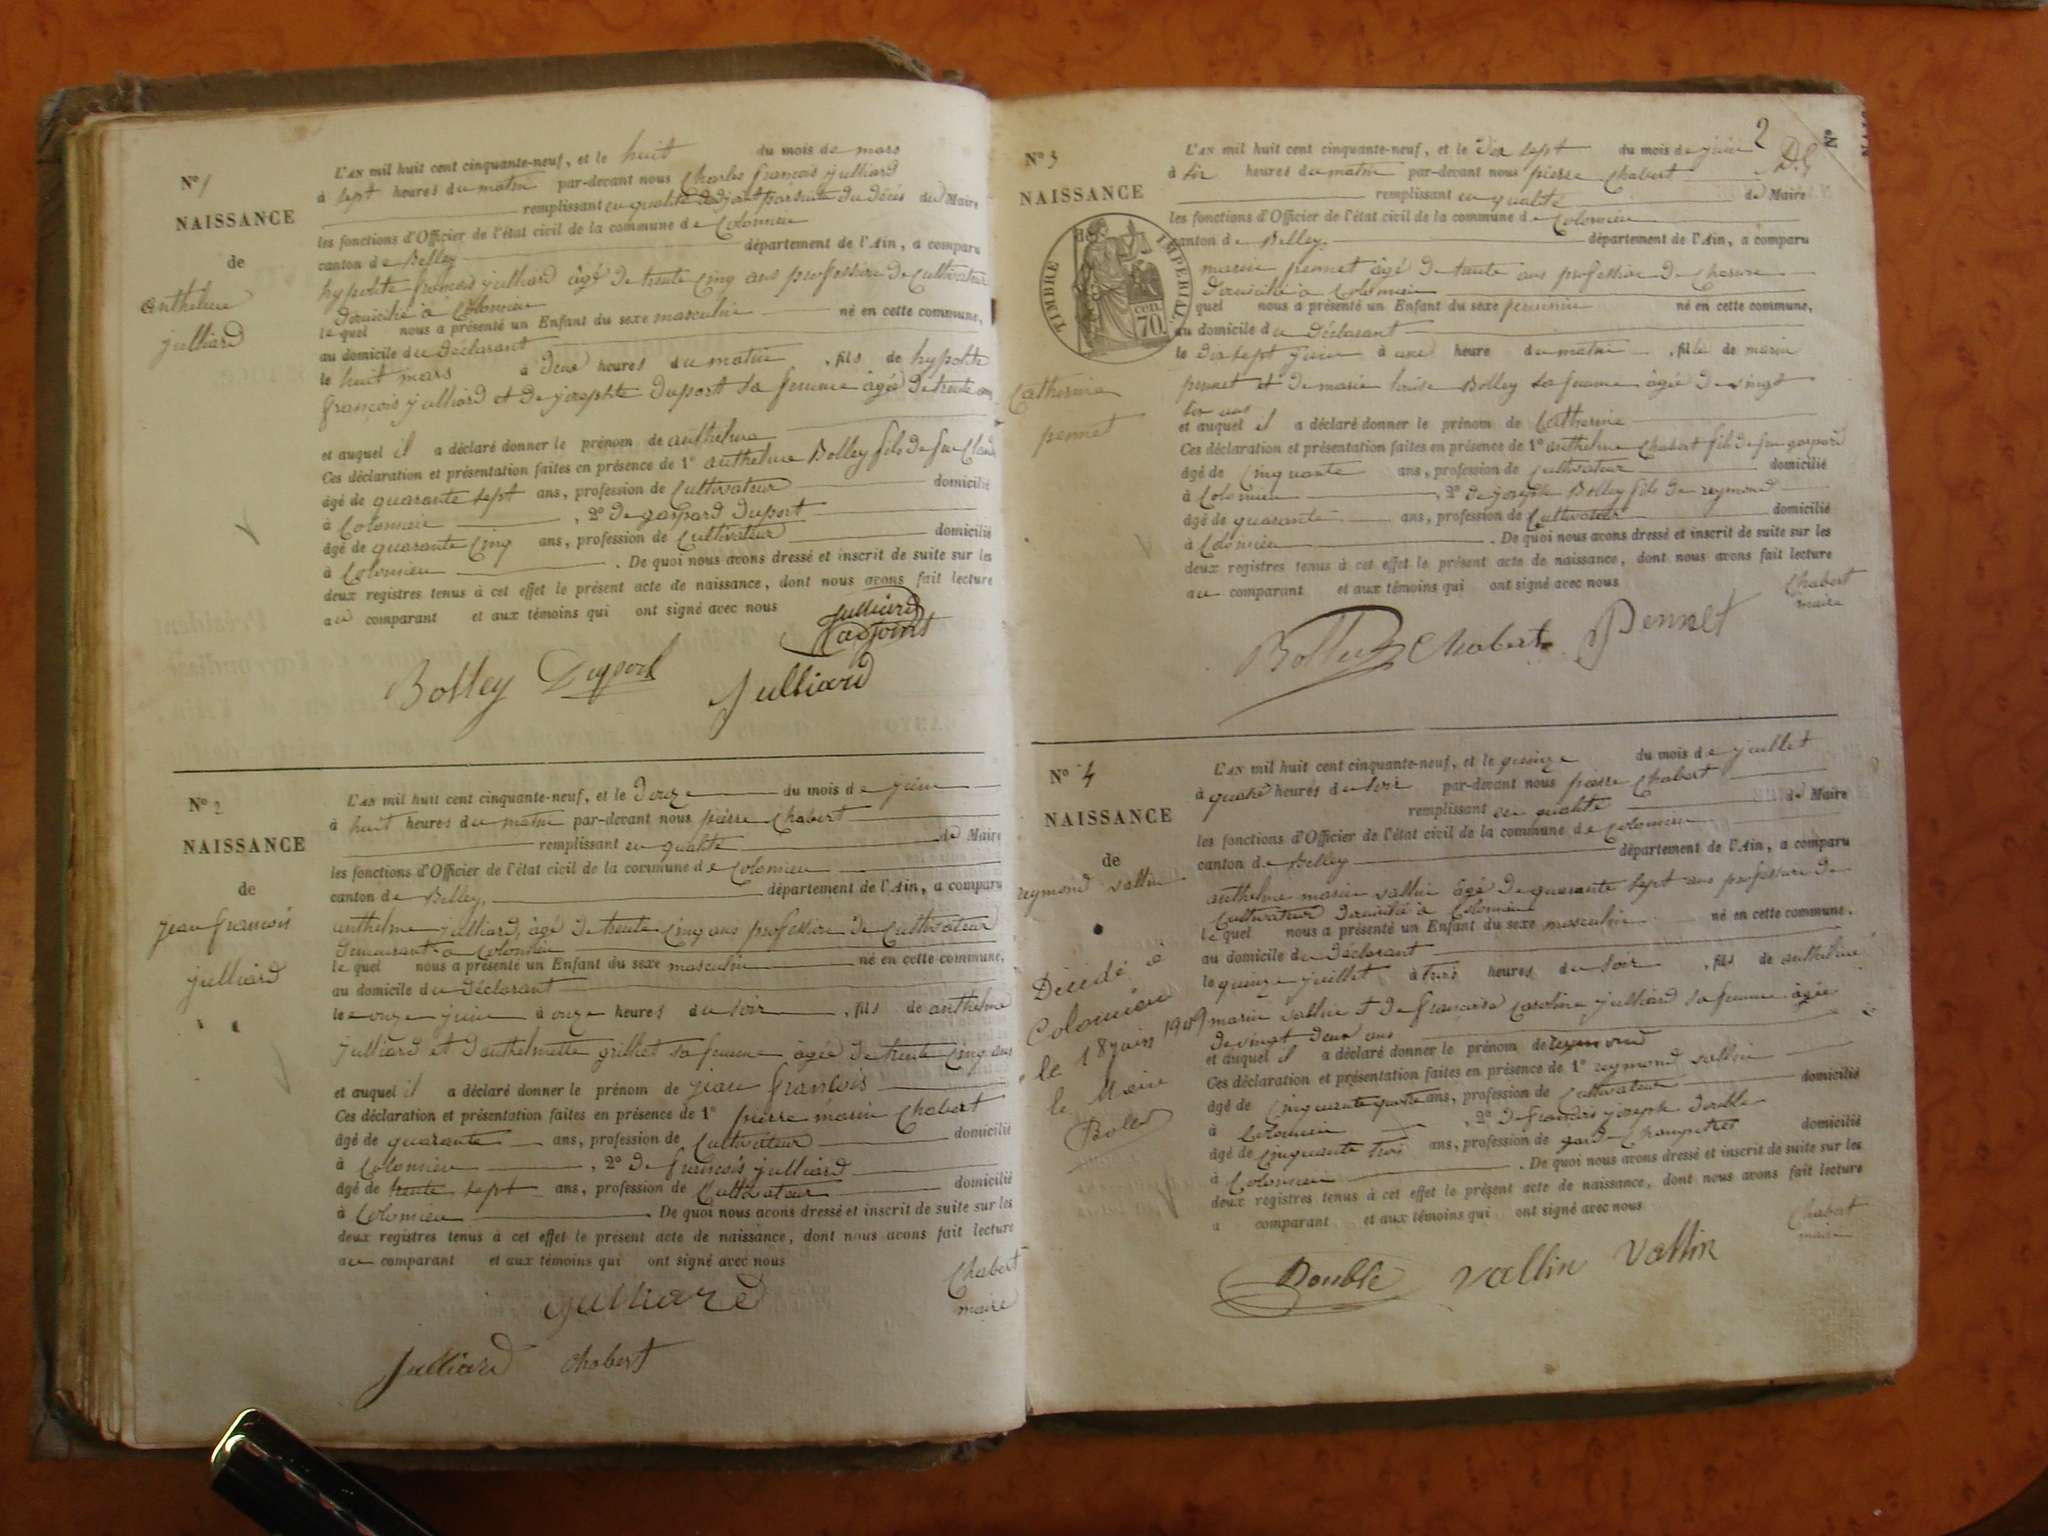 N° 1
NAISSANCE
de
anthelme
julliard
L'AN mil huit cent cinquante-neuf, et le huit du mois de mars
à sept heures du matin par-devant nous Charles françois julliard
remplissant en qualité d'adjoint par suite du décès du Maire
les fonctions d'Officier de l'état civil de la commune de Colomieu
canton de Belley département de l'Ain, a comparu
hypolite françois julliard âgé de trente cinq ans profession de Cultivateur
domicilié à Colomieu
le quel nous a présenté un Enfant du sexe masculin né en cette commune,
au domicile du Déclarant
le huit mars à deux heures du matin, fils de hypolite
françois julliard et de josephte duport sa femme âgée de trente ans
et auquel il a déclaré donner le prénom de anthelme
Ces déclaration et présentation faites en présence de 1° anthelme Bolley fils de feu Claude
âgé de quarante sept ans, profession de Cultivateur domicilié
à Colomieu, 2° de gaspard duport
âgé de quarante cinq ans, profession de Cultivateur domicilié
à Colomieu. De quoi nous avons dressé et inscrit de suite sur les
deux registres tenus à cet effet le présent acte de naissance, dont nous avons fait lecture
au comparant et aux témoins qui ont signé avec nous
Julliard
adjoint
Bolley Duport Julliard
N° 2
NAISSANCE
de
jean françois
julliard
L'AN mil huit cent cinquante-neuf, et le Douze du mois de juin
à huit heures du matin par-devant nous pierre Chabert
remplissant en qualité de Maire
les fonctions d'Officier de l'état civil de la commune de Colomieu
canton de Belley, département de l'Ain, a comparu
anthelme julliard, âgé de trente cinq ans profession de Cultivateur
demeurant à Colomieu
le quel nous a présenté un Enfant du sexe masculin né en cette commune,
au domicile du Déclarant
le onze juin à onze heures du soir, fils de anthelme
julliard et d'anthelmette grilliet sa femme âgée de trente cinq ans
et auquel il a déclaré donner le prénom de jean françois
Ces déclaration et présentation faites en présence de 1° pierre marin Chabert
âgé de quarante ans, profession de Cultivateur domicilié
à Colomieu, 2° de françois julliard
âgé de trente sept ans, profession de Cultivateur domicilié
à Colomieu De quoi nous avons dressé et inscrit de suite sur les
deux registres tenus à cet effet le présent acte de naissance, dont nous avons fait lecture
au comparant et aux témoins qui ont signé avec nous
Chabert
maire
Julliard
Julliard Chabert
2
N°
N° 3
NAISSANCE
de
TIMBRE IMPERIAL
cen. 70
Catherine
pennet
L'AN mil huit cent cinquante-neuf, et le Dix sept du mois de juin
à six heures du matin par-devant nous pierre Chabert
remplissant en qualité de Maire
les fonctions d'Officier de l'état civil de la commune de Colomieu
canton de Belley, département de l'Ain, a comparu
marin pennet âgé de trente ans profession de
domicilié à Colomieu
quel nous a présenté un Enfant du sexe feminin né en cette commune,
au domicile du Déclarant
le dix sept juin à une heure du matin, fille de marin
pennet et de marie louise Bolley sa femme âgée de vingt
six ans
et auquel il a déclaré donner le prénom de Catherine
Ces déclaration et présentation faites en présence de 1° anthelme Chabert fils de feu gaspard
âgé de Cinquante ans, profession de Cultivateur domicilié
à Colomieu, 2° de joseph Bolley fils de reymond
âgé de quarante ans, profession de Cultivateur domicilié
à Colomieu. De quoi nous avons dressé et inscrit de suite sur les
deux registres tenus à cet effet le présent acte de naissance, dont nous avons fait lecture
au comparant et aux témoins qui ont signé avec nous
Chabert
maire
Bolley Chabert Pennet
N° 4
NAISSANCE
de
reymond vallin
Décédé à
Colomieu
le 18 juin 1909
le Maire
L'AN mil huit cent cinquante-neuf, et le quinze du mois de juillet
à quatre heures du soir par-devant nous pierre Chabert
remplissant en qualité de Maire
les fonctions d'Officier de l'état civil de la commune de Colomieu
canton de Belley département de l'Ain, a comparu
anthelme marin vallin âgé de quarante sept ans profession de
Cultivateur domicilié à Colomieu
le quel nous a présenté un Enfant du sexe masculin né en cette commune.
au domicile du Déclarant
le quinze juillet à trois heures du soir, fils de anthelme
marin vallin et de françoise Caroline julliard sa femme âgée
de vingt deux ans
et auquel il a déclaré donner le prénom de reymond
Ces déclaration et présentation faites en présence de 1° reymond vallin
âgé de Cinquante quatre ans, profession de Cultivateur domicilié
à Colomieu, 2° de françois joseph double
âgé de Cinquante trois ans, profession de garde Champetres domicilié
à Colomieu. De quoi nous avons dressé et inscrit de suite sur les
deux registres tenus à cet effet le présent acte de naissance, dont nous avons fait lecture
a comparant et aux témoins qui ont signé avec nous
Chabert
maire
Double Vallin Vallin